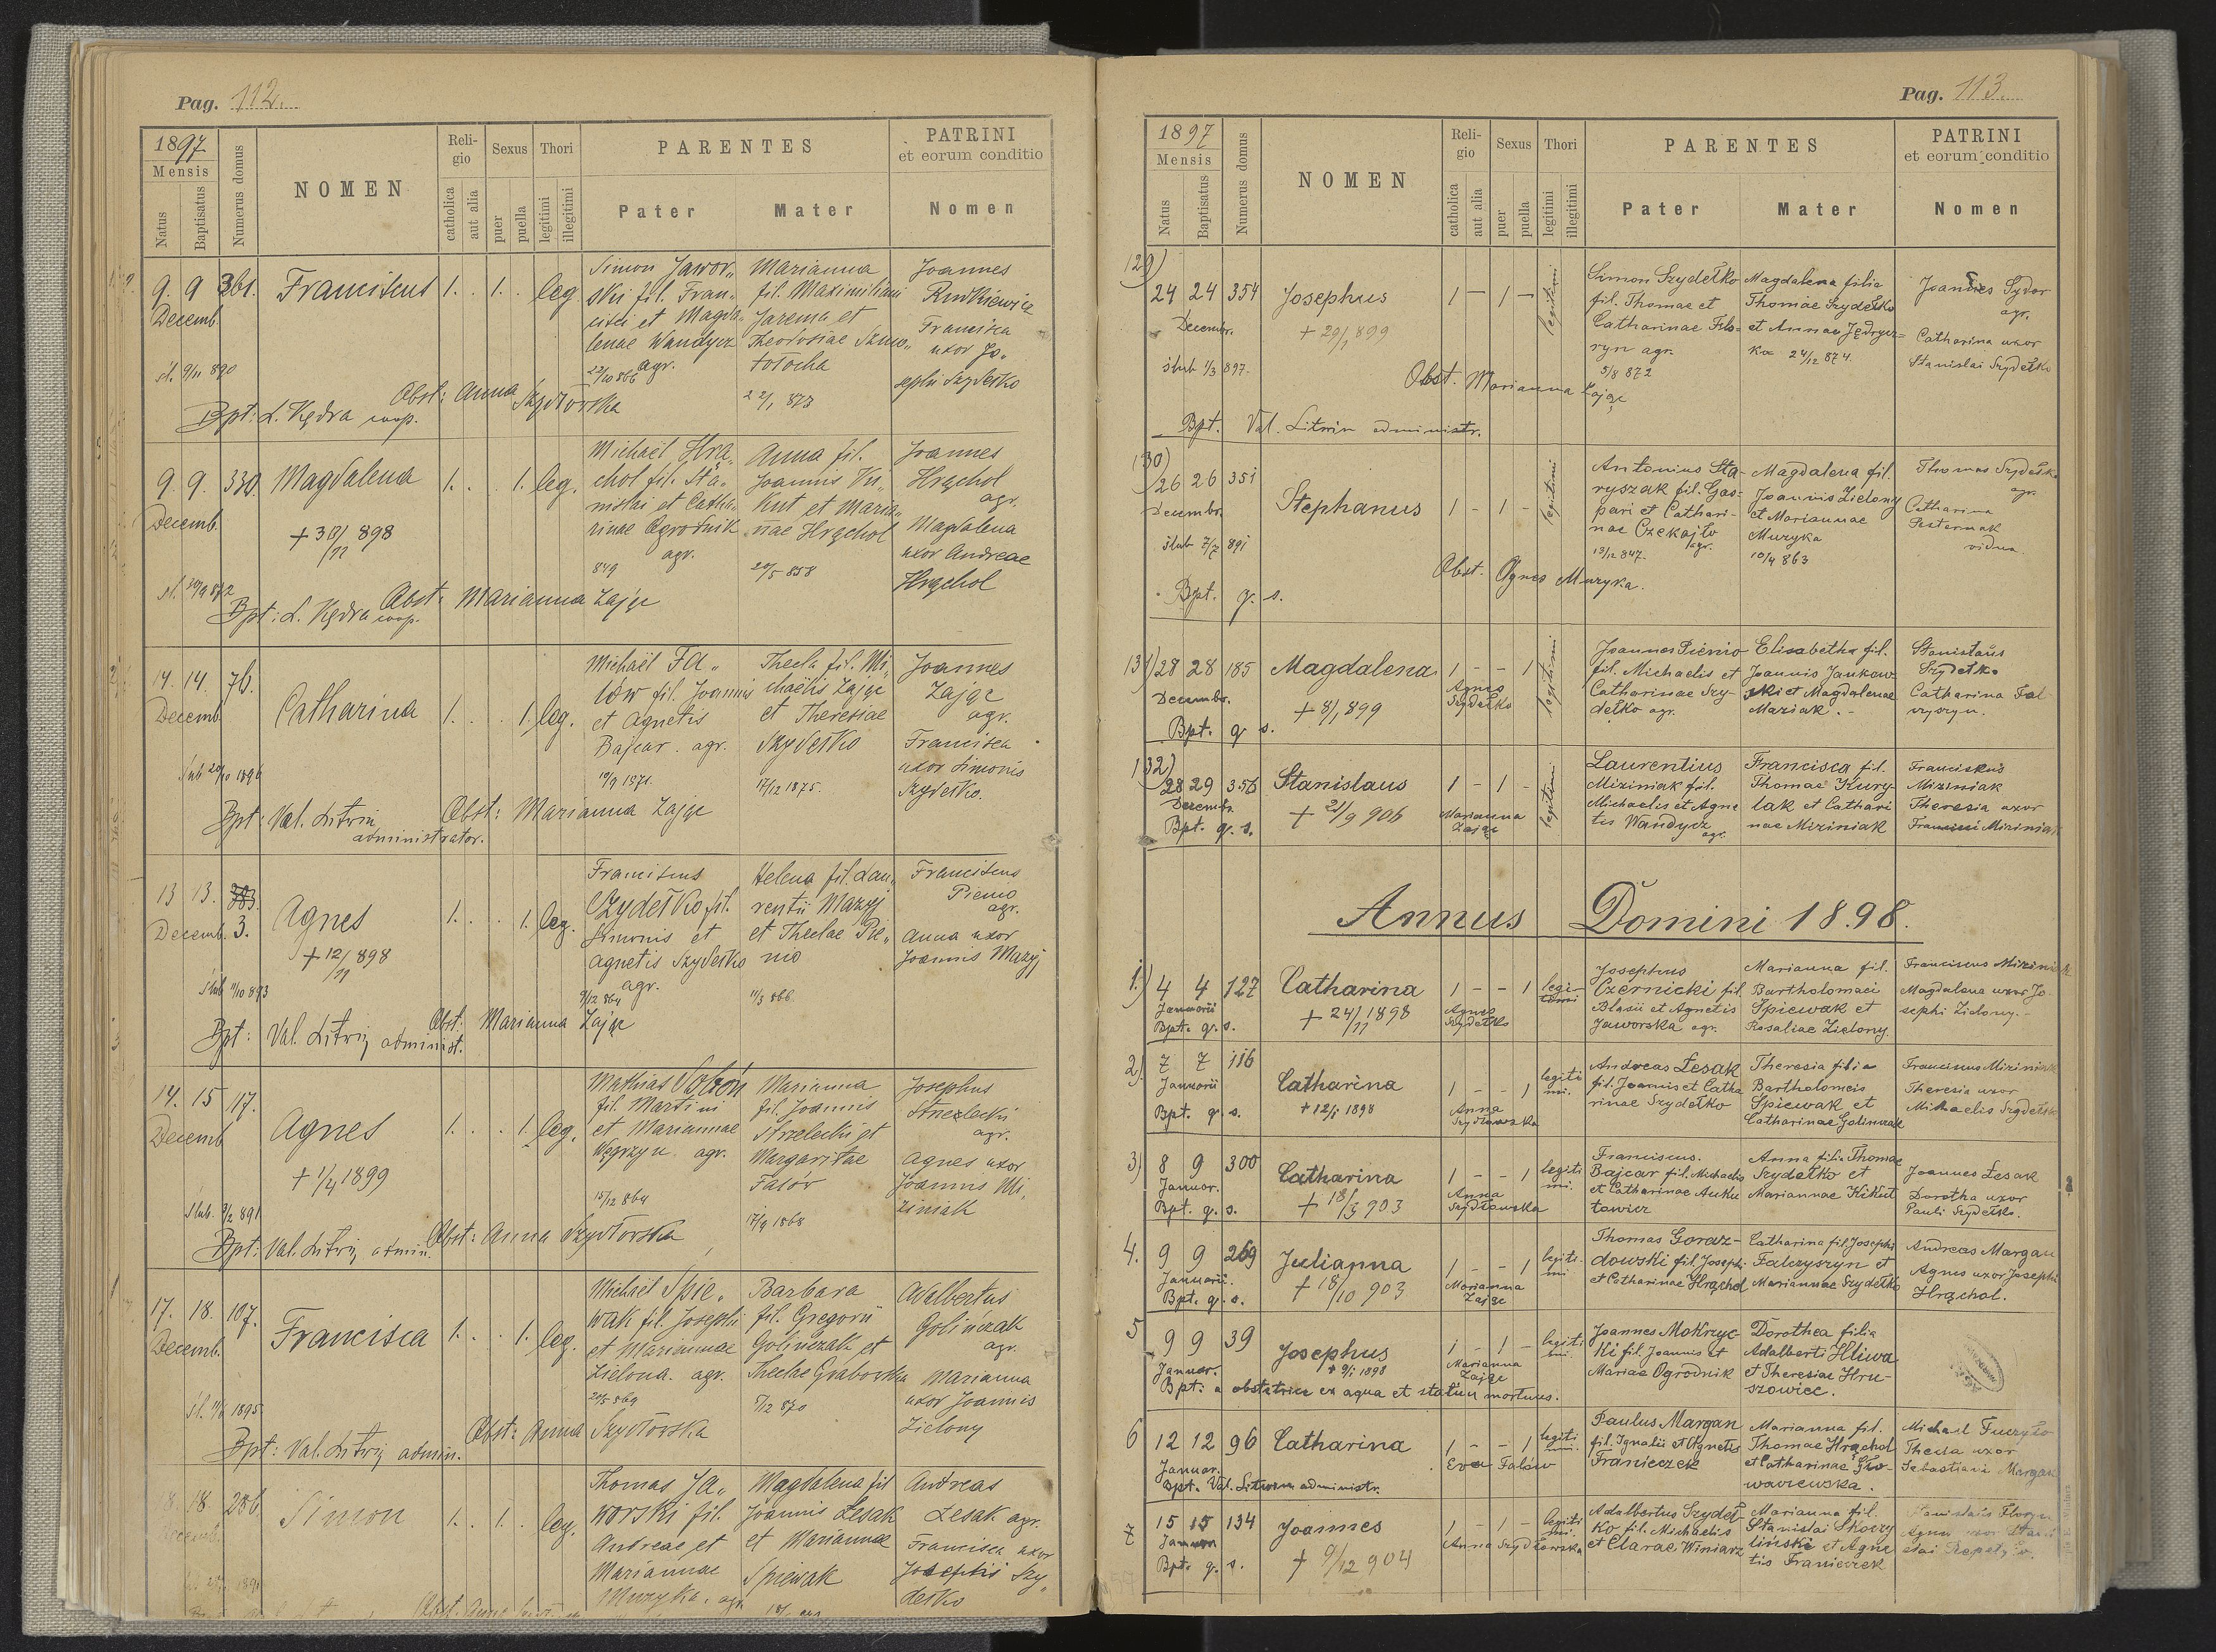 Pag. 112.
1897
Mensis
Natus
Baptisatus
Numerus domus
NOMEN
Religio
catholica
aut alia
Sexus
puer
puella
Thori
legitimi
illegitimi
PARENTES
Pater
Mater
PATRINI
et eorum conditio
Nomen
9. 9 361. Franciscus 1. . 1. . leg.
Decemb.
Simon Jawor„
ski fil. Fran„
cisci et Magda„
lenae Wandycz
agr.
22/10 866
Marianna
fil. Maximiliani
Jarema et
Theodosiae
22/1 873
Joannes
Rudkiewicz
Francisca
uxor Jo„
sephi Szydełko
sl. 9/11 890
Obst: Anna Szydłowska
Bpt: L. Kędra coop.
9. 9. 330. Magdalena 1. . . 1. leg.
Decemb.
+ 30/11 898
Michaël Hrą„
chol fil. Sta„
nislai et Catha„
rinae Ogrodnik
agr.
849
Anna fil.
Joannis Ku„
kut et Maria„
nae Hrąchol
20/5 858
Joannes
Hrąchol
agr.
Magdalena
uxor Andreae
Hrąchol
Obst: Marianna Zając
Bpt: L. Kędra coop.
14. 14. 76. Catharina 1. . . 1. leg.
Decemb.
Michaël Fa„
lów fil. Joannis
et Agnetis
Bajcar. agr.
10/9 1871.
Thecla fil. Mi„
chaëlis Zając
et Theresiae
Szydełko
17/12 1875.
Joannes
Zając
agr.
Francisca
uxor Simonis
Szydełko.
ślub 20/10 1896
Obst: Marianna Zając
Bpt: Val. Litwin
administrator.
13 13. 3. Agnes 1. . . 1. leg.
Decemb.
+ 12/11 898
Franciscus
Szydełko fil.
Simonis et
Agnetis Szydełko
agr.
9/12 864
Helena fil. Lau„
rentii Mazij
et Theclae Pie„
nio
11/3 866.
Franciscus
Pieńio
agr.
Anna uxor
Joannis Mazij
ślub 11/10 893
Obst: Marianna Zając
Bpt: Val. Litwin administ.
14. 15 117. Agnes 1. . . 1. leg.
Decemb
+ 1/4 1899
Mathias Soboń
fil. Martini
et Mariannae
Węgrzyn agr.
15/12 864
Marianna
fil. Joannis
Strzelecki et
Margaritae
Falów
17/9 1868
Josephus
Strzelecki
agr.
Agnes uxor
Joannis Mi„
ziniak
ślub. 9/2 891
Obst: Anna Szydłowska
Bpt: Val. Litwin admin.
17. 18. 107. Francisca 1. . . 1. leg.
Decemb.
Michaël Śpie„
wak fil. Josephi
et Mariannae
Zielona. agr.
20/5 869
Barbara
fil. Gregorii
Golińczak et
Theclae Grabowska
5/12 870
Adalbertus
Golińczak
agr.
Marianna
uxor Joannis
Zielony
Obst: Anna Szydłowska
Bpt: Val. Litwin admin.
18. 286. Simon 1. . 1. . leg.
Thomas Ja„
worski fil.
Andreae et
Mariannae
Muzyka. agr.
Magdalena fil
Joannis Łesak
et Mariannae
Śpiewak
Andreas
Łesak agr.
Francisca uxor
Josephi Szy„
dełko
Pag. 113.
1897
Mensis
Natus
Baptisatus
Numerus domus
NOMEN
Religio
catholica
aut alia
Sexus
puer
puella
Thori
legitimi
illegitimi
PARENTES
Pater
Mater
PATRINI
et eorum conditio
Nomen
129)
24 24 354 Josephus 1 – 1 – legitimi
Decembr.
+ 29/1 899
Simon Szydełko
fil. Thomae et
Catharinae Flo-
ryn agr.
5/8 872
Magdalena filia
Thomae Szydełko
et Annae Jędrycz-
ka 24/12 874.
Joannes Sydor
agr.
Catharina uxor
Stanislai Szydełko
ślub 1/3 897.
Obst. Marianna Zając
Bpt. Val. Litwin administr.
130)
26 26 351 Stephanus 1 – 1 – legitimi
Decembr.
Antonius Sta-
ryszak fil. Gas-
pari et Cathari-
nae Czekajło
agr.
13/12 847.
Magdalena fil.
Joannis Zielony
et Mariannae
Muzyka
10/4 863
Thomas Szydełko
agr.
Catharina
Pasternak
vidua.
ślub 7/7 891
Obst. Agnes Muzyka.
Bpt. q. s.
131) 28 28 185 Magdalena 1 – – 1 legitimi
Decembr.
Agnes
Szydełko
+ 8/1 899
Bpt. q s.
Joannes Pienio
fil. Michaelis et
Catharinae Szy-
dełko agr.
Elisabetha fil.
Joannis Jankow-
ski et Magdalenae
Maziak. -
Stanislaus
Szydełko
Catharina Fal
czyszyn.
132)
28 29 356 Stanislaus 1 – 1 – legitimi
Decemb.
Bpt. q. s.
+ 21/9 906
Marianna
Zając
Laurentius
Miziniak fil.
Michaelis et Agne
tis Wandycz
agr.
Francisca fil.
Thomae Kury-
lak et Cathari
nae Miziniak
Franciskus
Miziniak
Theresia uxor
Francisci Miziniak
Annus Domini 1898.
1.) 4 4 127 Catharina 1 – – 1 legi-
timi
Januarii
Bpt. q. s.
+ 24/11 1898
Agnes
Szydełko
Josephus
Czernicki fil.
Blasii et Agnetis
Jaworska agr.
Marianna fil.
Bartholomaei
Śpiewak et
Rosaliae Zielony.
Franciscus Miziniak
Magdalena uxor Jo-
sephi Zielony. -
2) 7 7 116 Catharina 1 – – 1 legiti
mi.
Januarii
Bpt. q. s.
+ 12/1 1898
Anna
Szydłowska
Andreas Łesak
fil. Joannis et Catha
rinae Szydełko
Theresia filia
Bartholomeis
Śpiewak et
Catharinae Golinczak
Franciscus Miziniak
Theresia uxor
Michaelis Szydełko
3) 8 9 300 Catharina 1 – – 1 legiti
mi.
Januar.
Bpt. q. s.
+ 18/3 903
Anna
Szydłowska
Franciscus.
Bajcar fil. Michaelis
et Catharinae Anku
towicz
Anna filia Thomae
Szydełko et
Mariannae Kikut
Joannes Łesak
Dorotha uxor
Pauli Szydełko.
4. 9 9 269 Julianna 1 – – 1 legiti
mi
Januarii.
Bpt. q. s.
+ 18/10 903
Marianna
Zając
Thomas Goraz-
dowski fil. Josephi
et Catharinae Hrąchol
Catharina fil Josephi
Falczyszyn et
Mariannae Szydełko
Andreas Margan
Agnes uxor Josephi
Hrąchol.
5 9 9 39 Josephus 1 – 1 – legiti
mi.
Januar.
+ 9/1 1898
Marianna
Zając
Bpt: a obstetrice ex aqua et statim mortuus.
Joannes Mokrzyc-
ki fil. Joannis et
Mariae Ogrodnik
Dorothea filia
Adalberti Hliwa
et Theresiae Hru-
szowiec.
6 12 12 96 Catharina 1 – – 1 legiti
mi.
Januar.
Eva Falów
Bpt. Val. Litwin administr.
Paulus Margan
fil. Ignatii et Agnetis
Franieczek
Marianna fil.
Thomae Hrąchol
et Catharinae Gło-
waczewska.
Michael Fuczyło
Thecla uxor
Sebastiani Margan
7 15 15 134 Joannes 1 – 1 – legiti
mi.
Bpt. q. s.
+ 9/12 904
Anna Szydłowska
Adalbertus Szydeł-
ko fil. Michaelis
et Clarae Winiarz
Marianna fil.
Stanislai Skoczy
liński et Agne
tis Franieczek